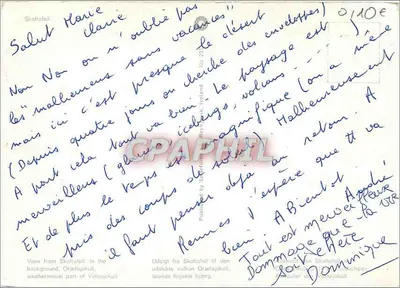 Skaftafell
0,10€
Salut Marie
Claire
Non Non on n'oublie pas
les "malheureux sans vacances"
mais ici c'est presque le désert
(Depuis quatre jours on cherche des enveloppes)
A part cela tout va bien. Le paysage est
merveilleux (glaciers, icebergs, volcans ...)
Et de plus le temps est magnifique (on a même
pris des coups de soleil). Malheureusement
il faut penser déjà au retour. A
Rennes j'espère que tt va
bien. A Bientôt André
Tout est merveilleux
Dommage que la vie
soit chère
Dominique
CPAPHIL
View from Skaftafell. In the
background, Öræfajökull,
southernmost part of Vatnajökull
Skaftafell til den
udslukte vulkan Öræfajökull,
Islands højeste bjerg.